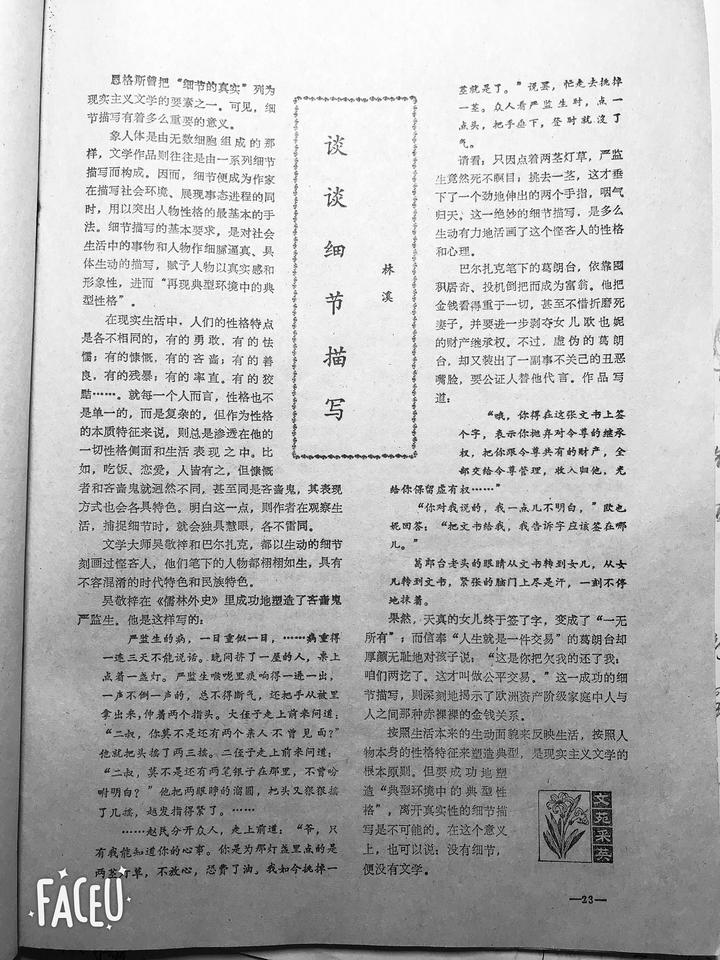 谈谈细节描写
林溪
恩格斯曾把“细节的真实”列为
现实主义文学的要素之一。可见，细
节描写有着多么重要的意义。
象人体是由无数细胞组成的那
样，文学作品则往往是由一系列细节
描写而构成。因而，细节便成为作家
在描写社会环境、展现事态进程的同
时，用以突出人物性格的最基本的手
法。细节描写的基本要求，是对社会
生活中的事物和人物作细腻逼真、具
体生动的描写，赋予人物以真实感和
形象性，进而“再现典型环境中的典
型性格”。
在现实生活中，人们的性格特点
是各不相同的，有的勇敢，有的怯
懦；有的慷慨，有的吝啬；有的善
良，有的残暴；有的率直。有的狡
黠……。就每一个人而言，性格也不
是单一的，而是复杂的，但作为性格
的本质特征来说，则总是渗透在他的
一切性格侧面和生活表现之中。比
如，吃饭、恋爱，人皆有之，但慷慨
者和吝啬鬼就迥然不同，甚至同是吝啬鬼，其表现
方式也会各具特色。明白这一点，则作者在观察生
活，捕捉细节时，就会独具慧眼，各不雷同。
文学大师吴敬梓和巴尔扎克，都以生动的细节
刻画过悭吝人，他们笔下的人物都栩栩如生，具有
不容混淆的时代特色和民族特色。
吴敬梓在《儒林外史》里成功地塑造了吝啬鬼
严监生。他是这样写的：
严监生的病，一日重似一日，……病重得
一连三天不能说话。晚间挤了一屋的人，桌上
点着一盏灯。严监生喉咙里痰响得一进一出，
一声不倒一声的，总不得断气，还把手从被里
拿出来，伸着两个指头。大侄子走上前来问道：
“二叔，你莫不是还有两个亲人不曾见面？”
他就把头摇了两三摇。二侄子走上前来问道：
“二叔，莫不是还有两笔银子在那里，不曾吩
咐明白？”他把两眼睁的溜圆，把头又狠狠摇
了几摇，越发指得紧了。……
……赵氏分开众人，走上前道：“爷，只
有我能知道你的心事。你是为那灯盏里点的是
两茎灯草，不放心，恐费了油。我如今挑掉一
茎就是了。”说罢，忙走去挑掉
一茎。众人看严监生时，点一
点头，把手垂下，登时就没了
气。
请看：只因点着两茎灯草，严监
生竟然死不瞑目；挑去一茎，这才垂
下了一个劲地伸出的两个手指，咽气
归天。这一绝妙的细节描写，是多么
生动有力地活画了这个悭吝人的性格
和心理。
巴尔扎克笔下的葛朗台，依靠囤
积居奇、投机倒把而成为富翁。他把
金钱看得重于一切，甚至不惜折磨死
妻子，并要进一步剥夺女儿欧也妮
的财产继承权。不过，虚伪的葛朗
台，却又装出了一副事不关己的丑恶
嘴脸，要公证人替他代言。作品写
道：
“哦，你得在这张文书上签
个字，表示你抛弃对令尊的继承
权，把你跟令尊共有的财产，全
部交给令尊管理，收入归他，光
给你保留虚有权……”
“你对我说的，我一点儿不明白，”欧也
妮回答：“把文书给我，我告诉字应该签在哪
儿。”
葛郎台老头的眼睛从文书转到女儿，从女
儿转到文书，紧张的脑门上尽是汗，一刻不停
地抹着。
果然，天真的女儿终于签了字，变成了“一无
所有”；而信奉“人生就是一件交易”的葛朗台却
厚颜无耻地对孩子说：“这是你把欠我的还了我；
咱们两讫了。这才叫做公平交易。”这一成功的细
节描写，则深刻地揭示了欧洲资产阶级家庭中人与
人之间那种赤裸裸的金钱关系。
按照生活本来的生动面貌来反映生活，按照人
物本身的性格特征来塑造典型，是现实主义文学的
根本原则。但要成功地塑
造“典型环境中的典型性
格”，离开真实性的细节描
写是不可能的。在这个意义
上，也可以说：没有细节，
便没有文学。
文苑采英
—23—
FACEU